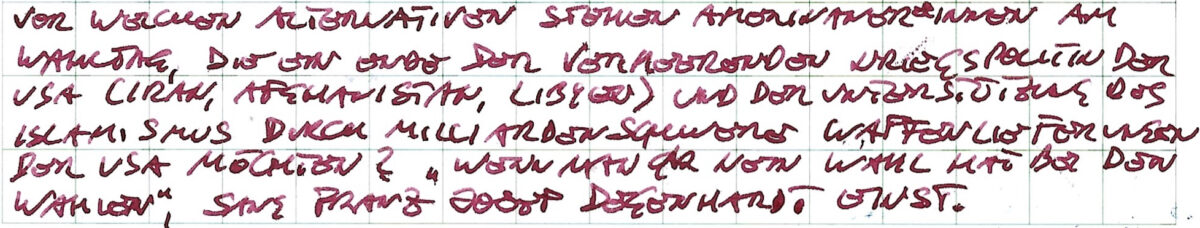 VOR WELCHEN ALTERNATIVEN STEHEN AMERIKANER*INNEN AM
WAHLTAG, DIE EIN ENDE DER VERHEERENDEN KRIEGSPOLITIK DER
USA (IRAN, AFGHANISTAN, LIBYEN) UND DER UNTERSTÜTZUNG DES
ISLAMISMUS DURCH MILLIARDENSCHWERE WAFFENLIEFERUNGEN
DER USA MÖCHTEN? „WENN MAN GAR KEIN WAHL HAT BEI DEN
WAHLEN“, SANG FRANZ JOSEF DEGENHARDT EINST.